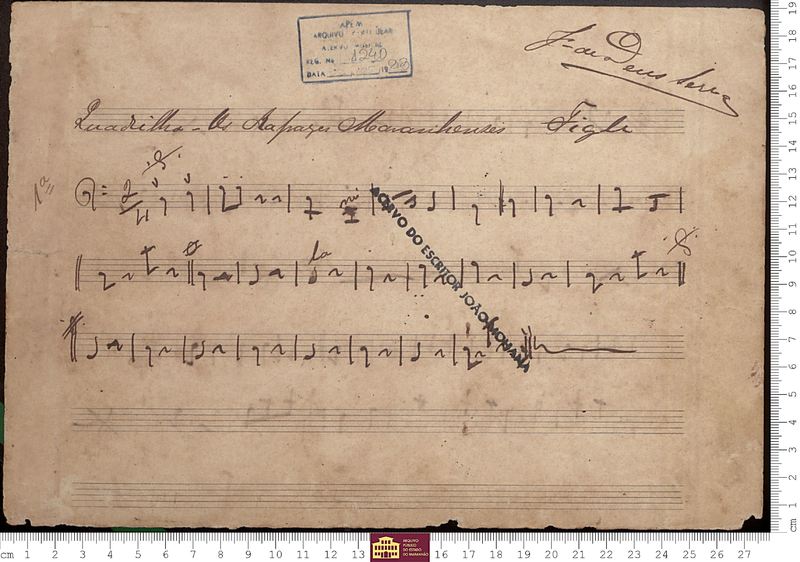 APEM
ARQUIVO
ACERVO
REG. Nº 1240
DATA
Quadrilha - Os Rapazes Maranhenses
1ª
2
4
la
ACERVO DO ESCRITOR JOÃO MOHANA
cm 1 2 3 4 5 6 7 8 9 10 11 12 13
ARQUIVO
PÚBLICO
DO ESTADO
DO MARANHÃO
16 17 18 19 20 21 22 23 24 25 26 27
cm 1 2 3 4 5 6 7 8 9 10 11 12 13 14 15 16 17 18 19